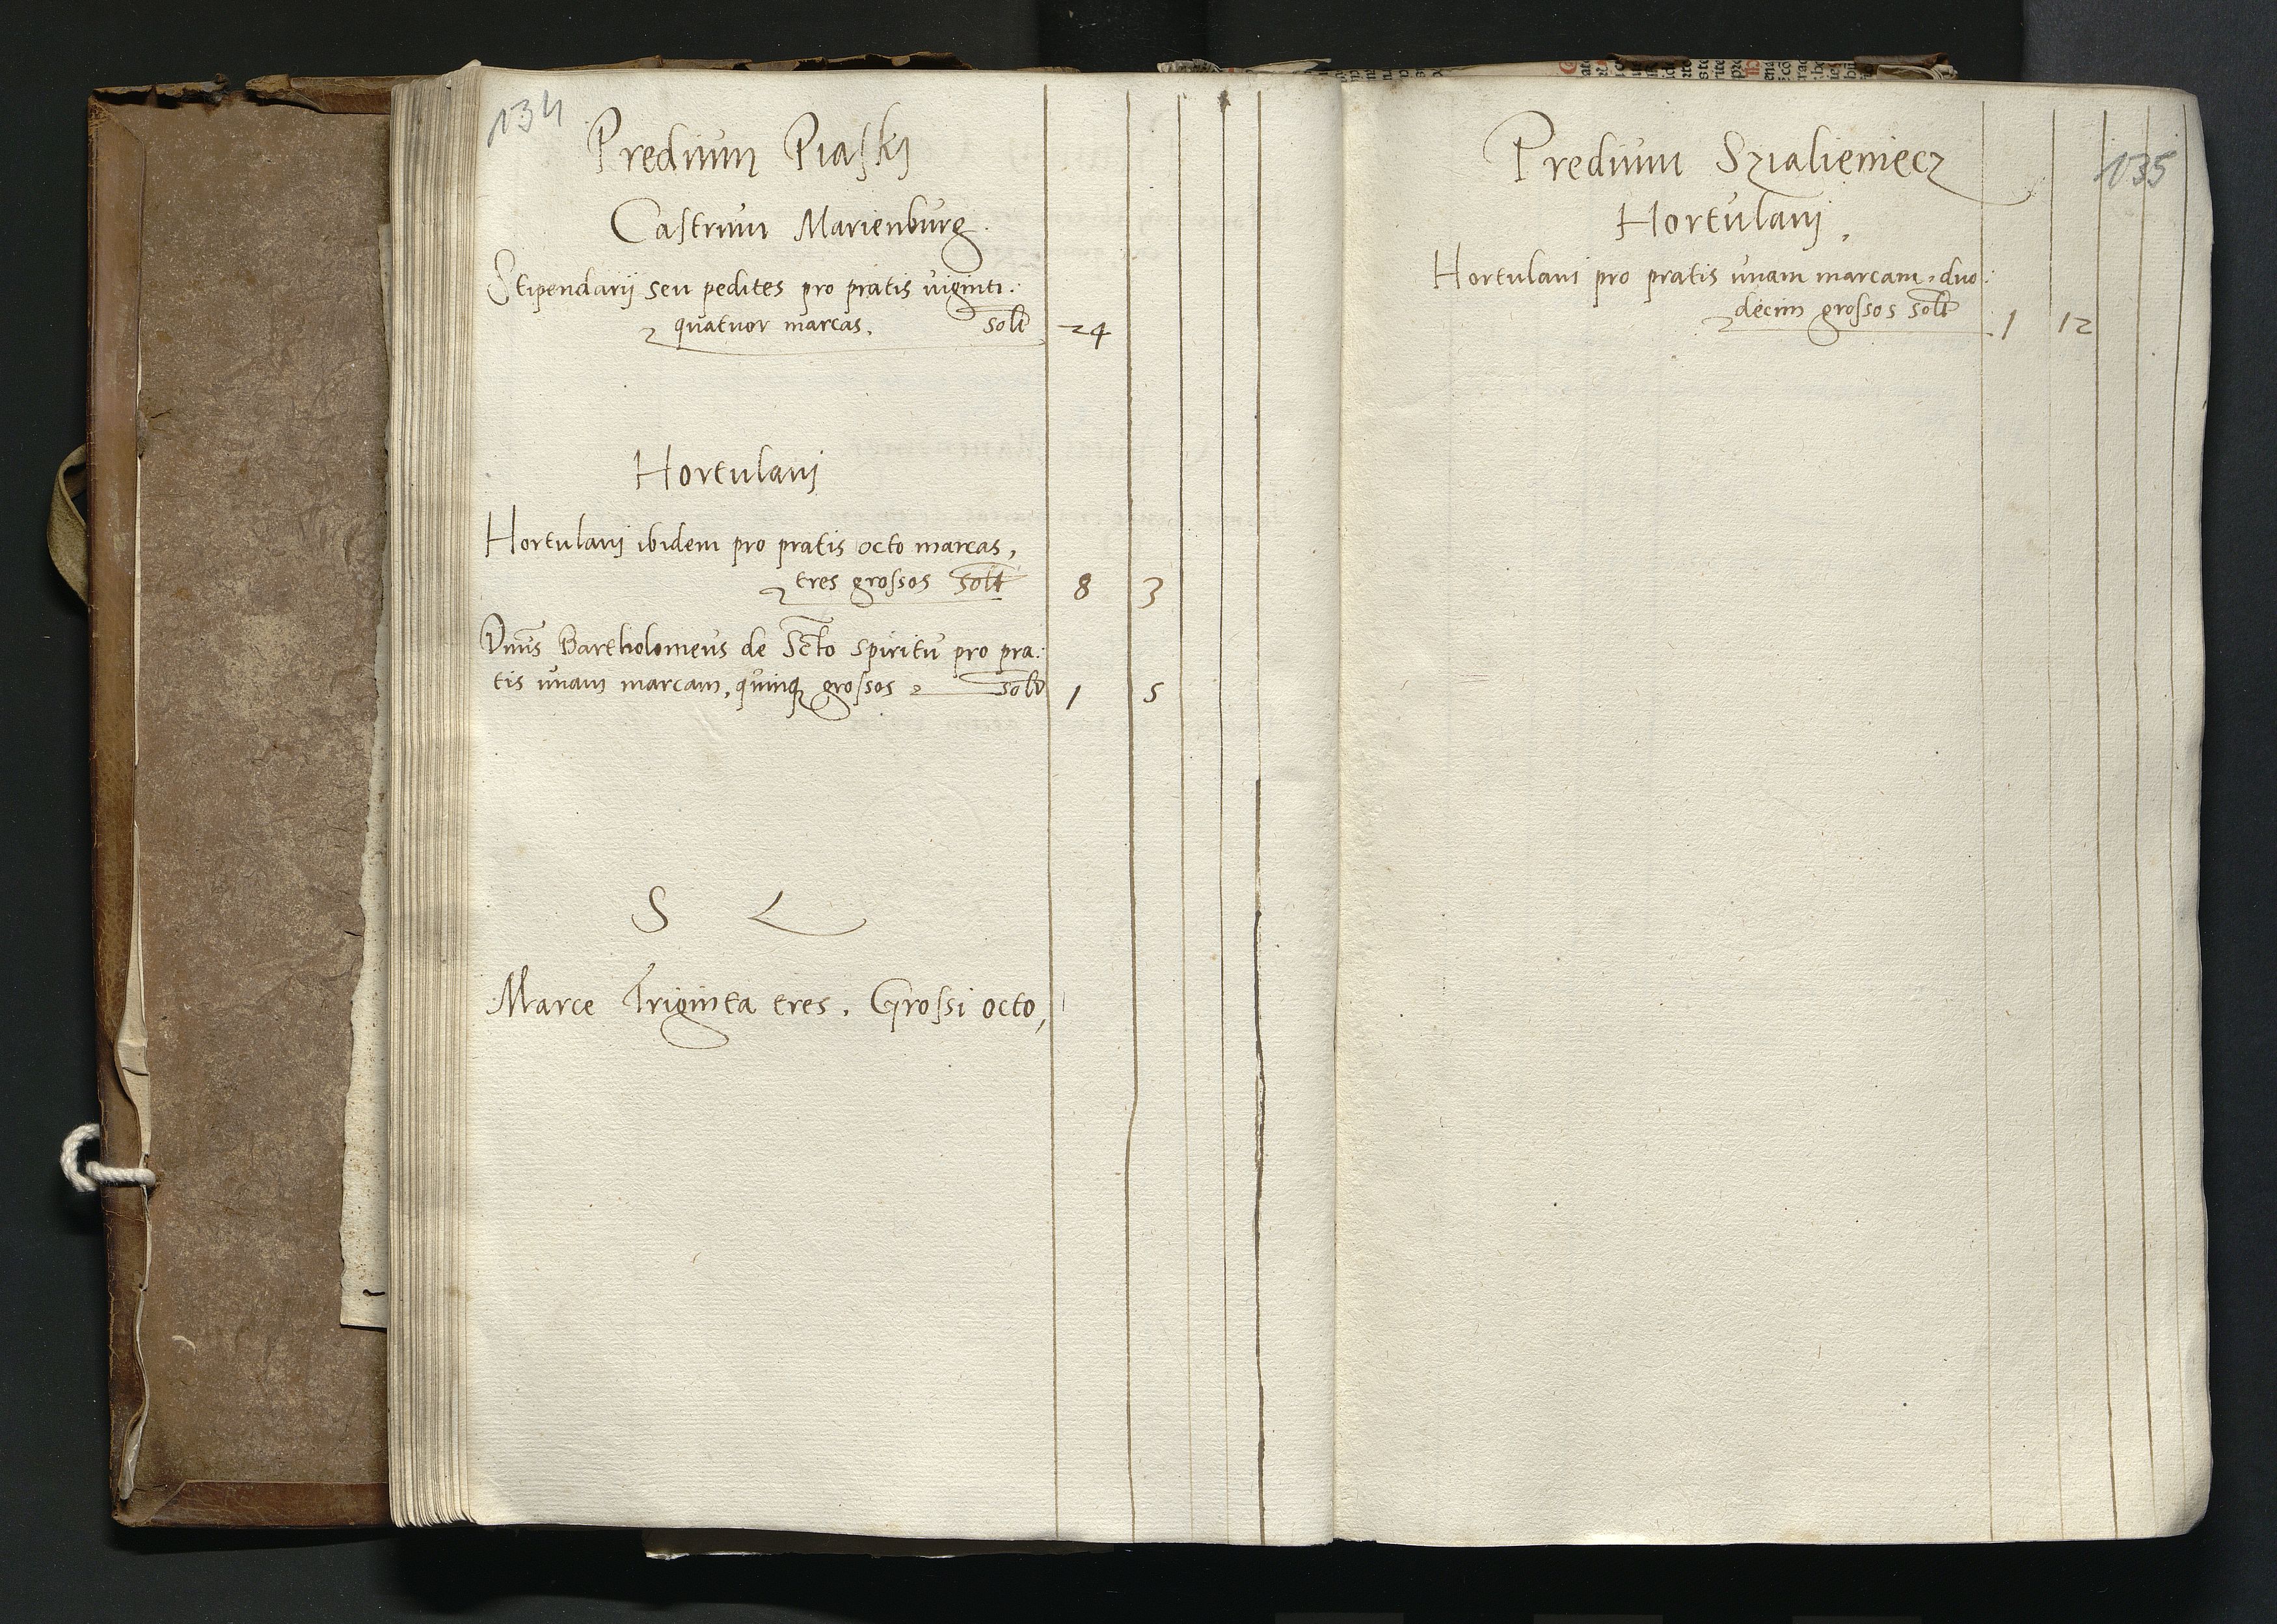 134
Predium Piaskj
Castrum Marienburg.
Stipendarij seu pedites pro pratis viginti.:
quatuor marcas. solt 24
Hortulanj
Hortulanj ibidem pro pratis octo marcas,
tres grossos solt 8 3
Dnus Bartholomeus de Scto spiritu pro pra.:
tis unam marcam, quinq grossos solt 1 5
S L
Marce Triginta tres. Grossi octo,
135
Predium Szialieniecz
Hortulanj.
Hortulani pro pratis unam marcam, duo.:
decim grossos solt 1 12